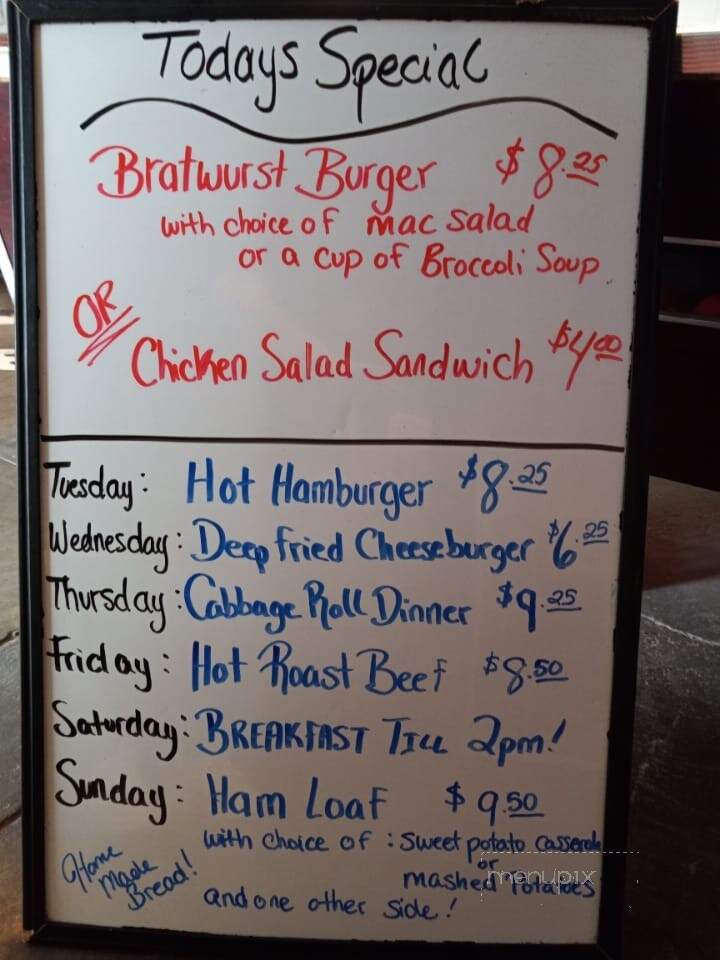 Todays Special
Bratwurst Burger $8.25
with choice of mac salad
or a cup of Broccoli Soup
OR
Chicken Salad Sandwich $4.00
Tuesday: Hot Hamburger $8.25
Wednesday: Deep fried Cheeseburger $6.25
Thursday: Cabbage Roll Dinner $9.25
Friday: Hot Roast Beef $8.50
Saturday: BREAKFAST TILL 2pm!
Sunday: Ham Loaf $9.50
with choice of: sweet potato casserole
or
mashed Potatoes
and one other side!
Home
Made
Bread!
menupix